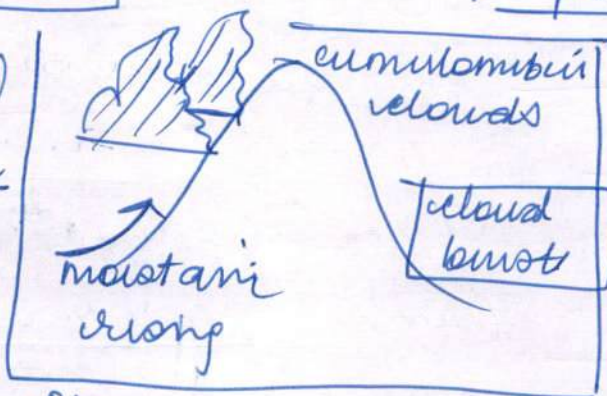 cumulonimbus
clouds
cloud
burst
moist air
rising